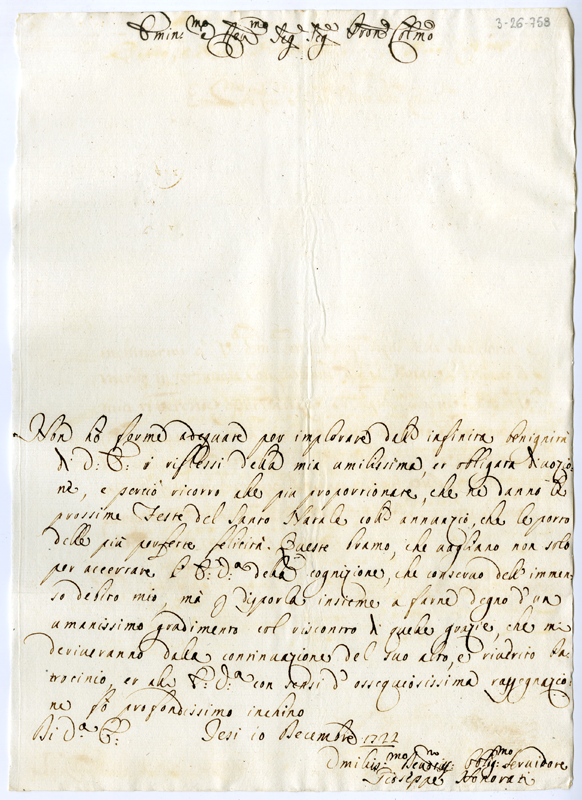 3-26-758
Emin.mo e Rev.mo Sig.r Sig.r Pron.e Col.mo
Non hò forme adequate per implorare dalla infinita benignità
di V: E: i riflessi della mia umilissima, et obligata divozio
ne, e perciò ricorro alle più proporzionate, che ne danno le
prossime Feste del Santo Natale coll' annunzio, che le porto
delle più perfette felicità. Queste bramo, che vagliano non solo
per accertare l' E: V:a della cognizione, che conservo dell' immen
so debito mio, mà p disporla insieme a farne degno d' un
umanissimo gradimento col riscontro di quelle grazie, che mi
deriveranno dalla continuazione del suo alto, e riverito Pa
trocinio, et all' E: V:a con sensi d' ossequiosissima rassegnazio
ne fò profondissimo inchino
Di V:a E: Jesi 10 Decembre 1722
Umiliss:mo Devotiss:mo Oblig:mo Servidore
Gioseppe Honorati